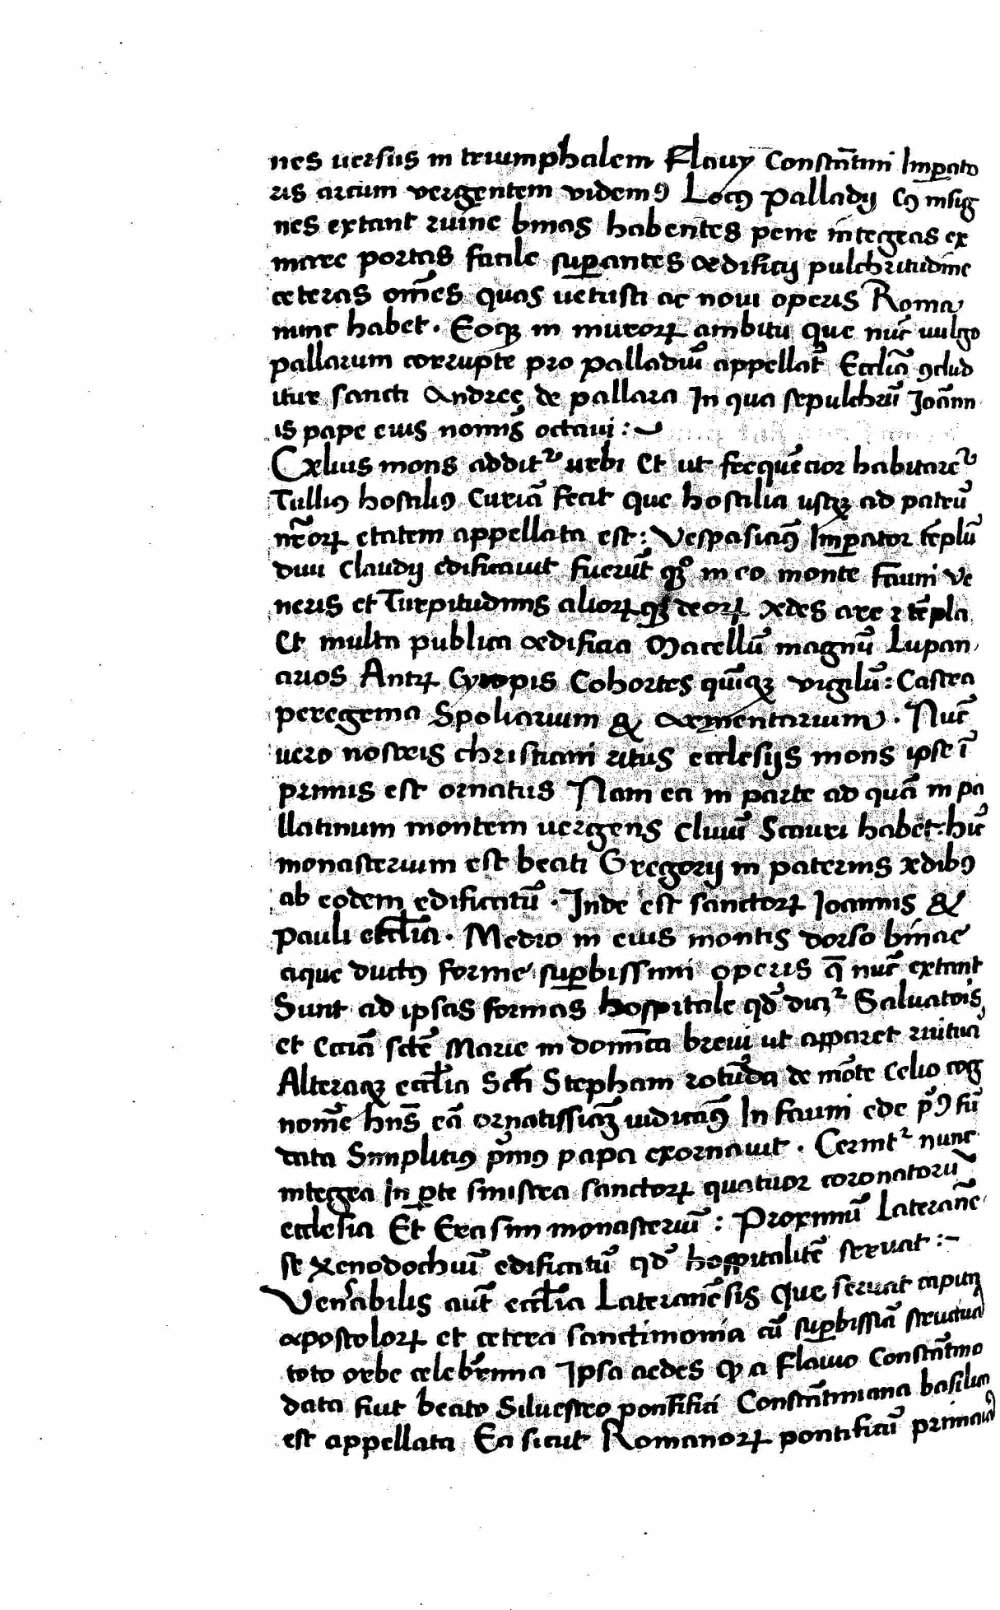 nes versus in triumphalem Flauij Constãtini Imp̱ato
ris arcum vergentem videmꝰ Locꝰ Palladij Cꝰ insig
nes extant ruine binas habentes pene integras ex
marc portas facile sup̱antes ædificij pulchritudine
ceteras om̃es quas vetusti ac noui operis Roma
nunc habet. Eoqꝫ in muroꝝ ambitu que nũc uulgo
pallarum corrupte pro palladiũ appellat᷑ Eccl̃ia ꝯclud
itur sancti Andreę de pallara In qua sepulchrũ Joãnn
is pape eius nomĩs octaui :~
Cælius mons addit᷑ urbi Et ut frequẽcior habitaret᷑
Tullius hostiliꝰ Curiã fecit que hostilia usqꝫ ad patrũ
nr̃oꝝ etatem appellata est : Vespasianꝰ Imp̱ator tẽplũ
diui Claudij edificauit fuerũt qꝫ in eo monte fauni Ve
neris et Turpitudinis alioꝝqꝫ deoꝝ ædes aræ ⁊ tẽpla
Et multa publica ædificia Macellũ magnũ Lupan
arios Antꝝ Cyclopis Cohortes quĩqꝫ virgilũ : Castra
peregrina Spoliarium & armentarium. Nũc
vero nostris christiani ritus ecclesijs mons ipse ĩ
primis est ornatus Nam ea in parte ad quã in pa
llatinum montem uergens cliuũ Scauri habet : hũc
monasterium est beati Gregorij in paternis ædibꝰ
ab eodem edificatũ. Inde est sanctoꝝ Joannis &
Pauli eccl̃ia. Medio in eius montis dorso binae
aque ductꝰ forme sup̱bissimi operis q̃ nũc extant
Sunt ad ipsas formas hospitale qd̃ dicit᷑ Saluatõis
et Eccl̃iã sctẽ Marie in domĩca breui ut apparet ruiturã
Alteraqꝫ eccl̃ia Scti Stephani rotũda de mõte Celio cog
nomẽ hñs eã ornatissiãꝫ iudicamꝰ In fauni ede pꝰ fũ
data Simpliciꝰ pꝰmꝰ papa exornauit. Cernit᷑ nunc
integra In p̱te sinistra sanctoꝝ quatuor coronatorũ
ecclesia Et Erasimi monasteriũ : Proximũ Lateranẽ
se Xenodochiũ edificatũ qd̃ hospitalitẽ seruat :~
Ven̾abilis aut̃ eccl̃ia Lateranẽsis Que seruat capitꝝ
apostoloꝝ et cetera sanctimonia cũ sup̱bissiã structura
toto orbe celeb̾rima Ipsa aedes Ꝙ a Flauio Constãtino
data fiut beato Siluestro pontifici Constãtiniana basilica
est appellata Ea sicut Romanoꝝ pontificũ primatꝰ